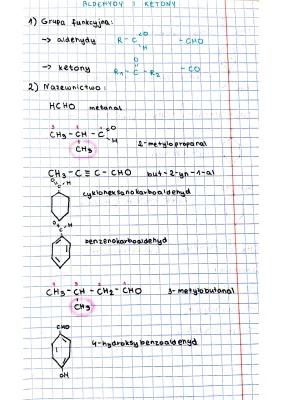 ALDEHYDY I KETONY
1) Grupa funkcyjna:
→ aldehydy R-C O H -CHO
→ ketony R₁-C-R₂ O -CO
2) Nazewnictwo:
HCHO metanal
3 2 1
CH₃-CH-C O H
CH₃ 2-metylopropanal
CH₃-C≡C-CHO but-2-yn-1-al
O C H
cykloheksanokarboaldehyd
O C H
benzenokarboaldehyd
4 3 2 1
CH₃-CH-CH₂-CHO 3-metylobutanal
CH₃
CHO
4-hydroksybenzoaldehyd
OH